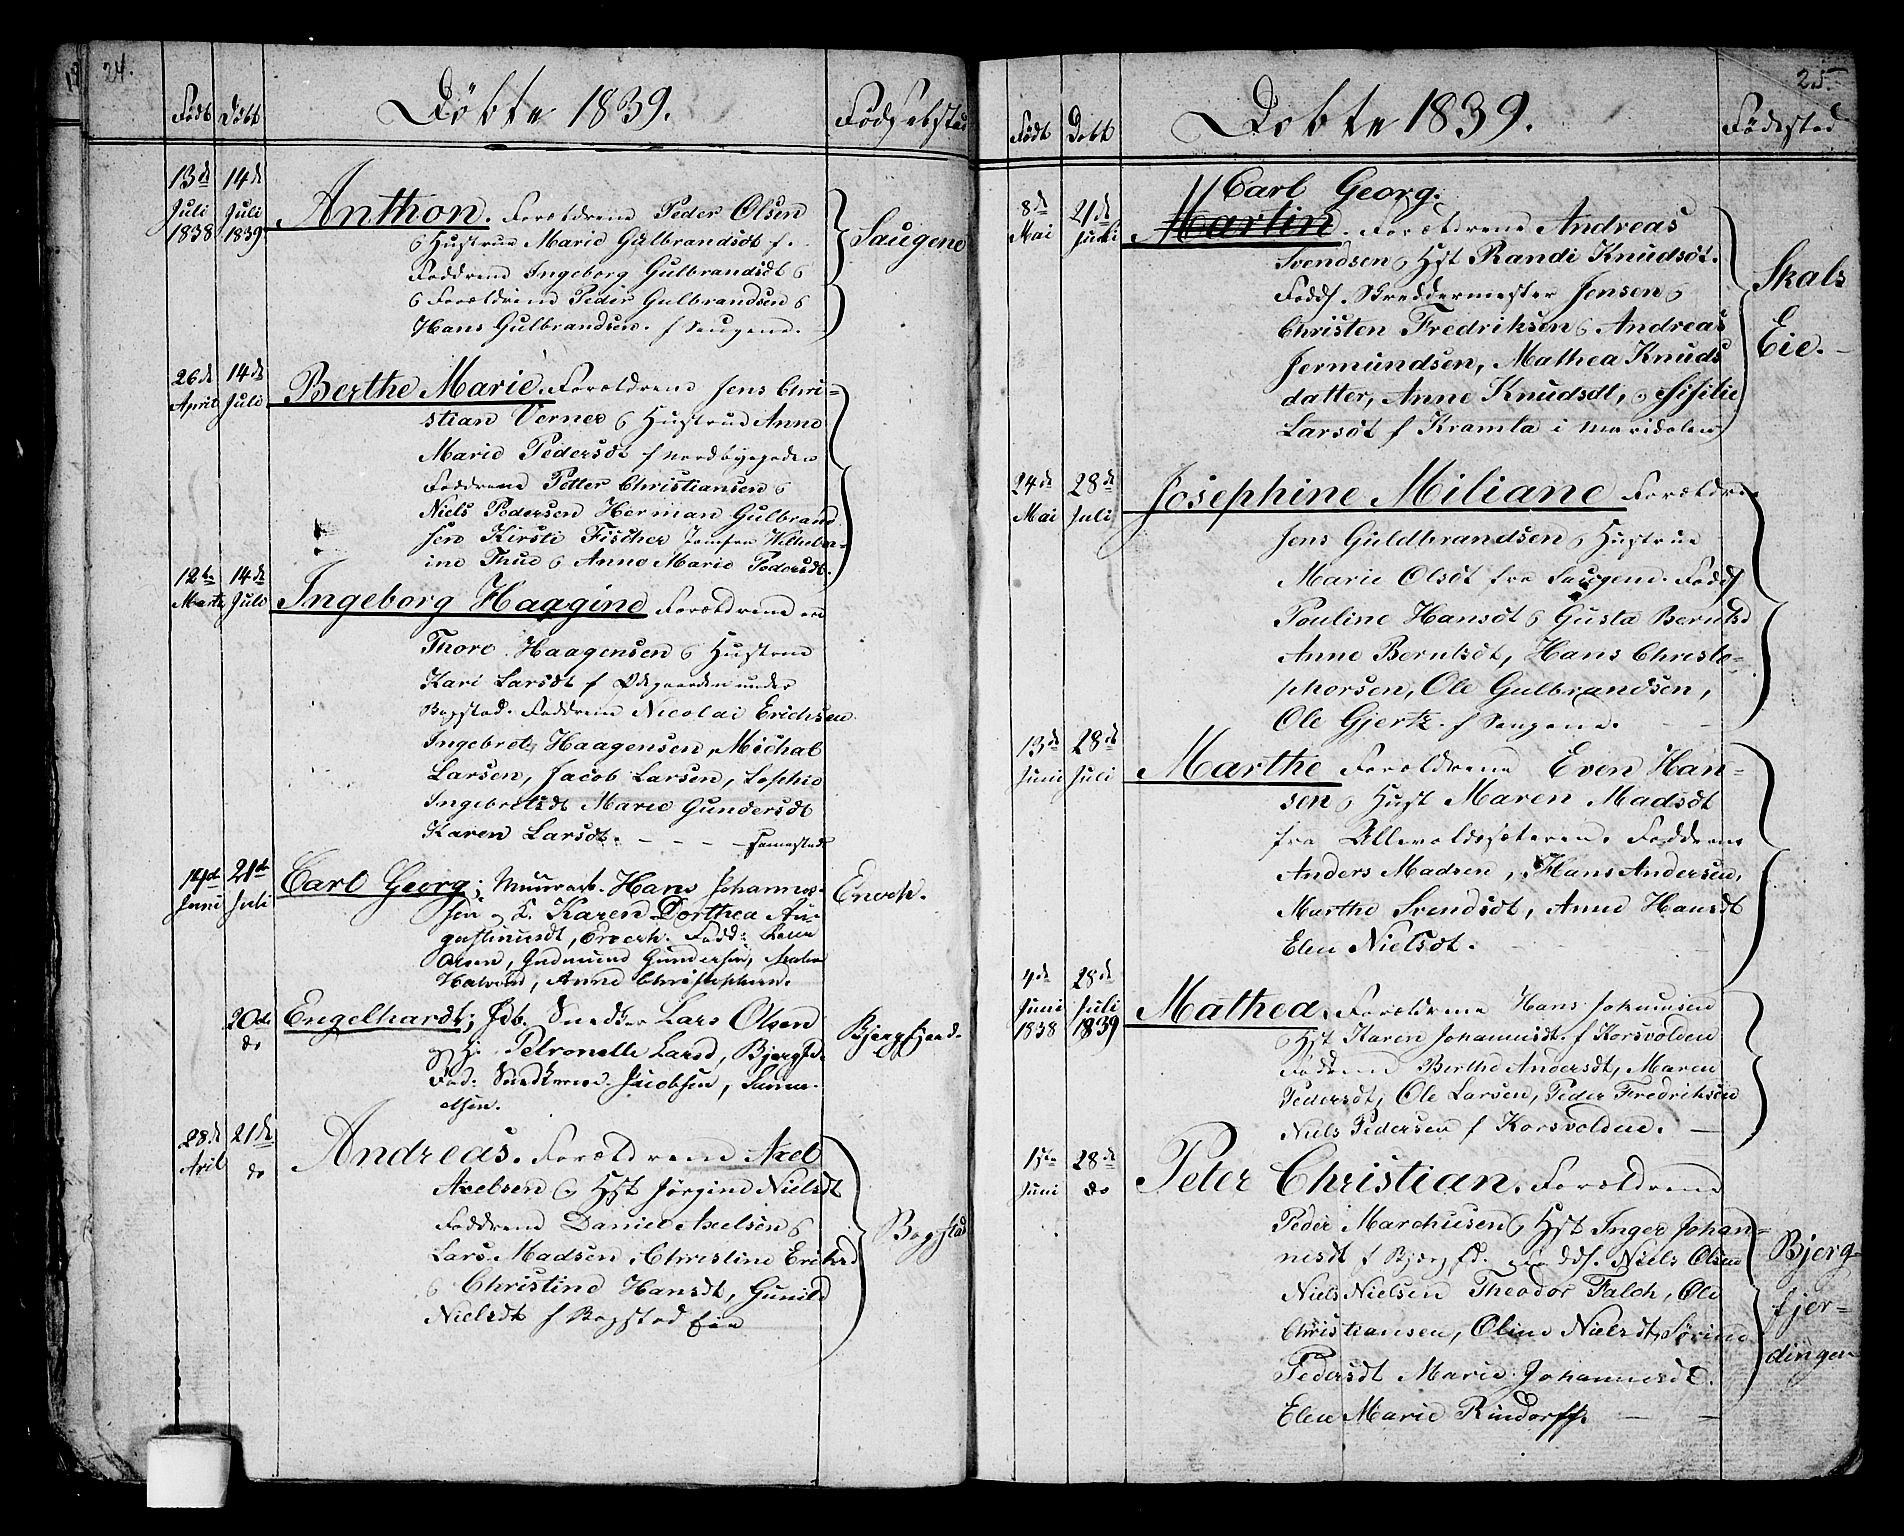 24.
Født Døbt
Døbte 1839.
Fødselsted
13de Juli 1838
14de Juli 1839
Anthon. Forældrene Peder Olsen
& Hustrue Marie Gulbrandsdt f.
Faddrene Ingeborg Gulbrandsdt &
& Forældrene Peder Gulbrandsen &
Hans Gulbrandsen. f Saugene.
Saugene
26de April
14de Juli
Berthe Marie. Forældrene Jens Chri-
stian Verner & Hustrue Anne
Marie Pedersdt f
Faddrene Petter Christiansen &
Niels Pedersen Herman Gulbrand
sen Kirsti Fischer Jomfru
ine Thue & Anne Marie Pedersdt.
12te Martz
14de Juli
Ingeborg Haagine Forældrene er
Thore Haagensen & Hustrue
Kari Larsdt f Ødegaarden under
Bogstad. Faddrene Nicolai Erichsen
Ingebret Haagensen, Michal
Larsen, Jacob Larsen, Sophie
Ingebretsdt Marie Gundersdt
Karen Larsdt. - - - - Samestede
14de Juni
21de Juli
Carl Georg; Murarb. Hans Johannes-
sen & K. Karen Dorthea Au-
gustinusdt, Fadd:
Olsen, Gudmund Gundersen,
Halvorsd, Anne Christophersd.
20de do
Engelhardt; Fdb. Snedker Lars Olsen
& H. Petronelle Larsd, Bjergsd.
Fad: Snedkersv. Jacobsen, Samu-
elsen.
Bjergfjerd.
28de April
21de do
Andreas. Forældrene Axel
Axelsen & Hst Jørgine Nielsdt
Faddrene Daniel Axelsen &
Lars Madsen, Christine Eriksd
& Christine Hansdt, Gunild
Nielsdt f Bogstad Eie
Bogstad
25.
Født Døbt
Døbte 1839.
Fødested
8de Mai
21de Juli
Carl Georg.
Martin. Forældrene Andreas
Svendsen & Hst Randi Knudsdt.
Fadds. Skreddermester Jensen &
Christen Fredriksen & Andreas
Jermundsen, Mathea Knuds
datter, Anne Knudsdt, & Sisilie
Larsdt f Kramla i Maridalen
Skals
Eie.
24de Mai
28de Juli
Josephine Miliane Forældrene
Jens Guldbrandsen & Hustrue
Marie Olsdt fra Saugene. Fadds
Pouline Hansdt & Gusta Berntsd
Anne Berntsdt, Hans Christo-
phorsen, Ole Gulbrandsen,
Ole Gjertz. f Saugene.
13de Juni
28de Juli
Marthe Forældrene Even Han-
sen & Hust Maren Madsdt
fra Ullevoldsæteren. Faddrene
Anders Madsen, Hans Andersen,
Marthe Svendsdt, Anne Hansdt
Elen Nielsdt.
4de Juni 1838
28de Juli 1839
Mathea. Forældrene Hans Johannsen
& Hst Karen Johannisdt. f Korsvolden
Faddrene Berthe Andersdt, Maren
Pedersdt, Ole Larsen, Peder Fredriksen
Niels Pedersen f Korsvolden.
15te Juni
28de do
Peter Christian. Forældrene
Peder Marchusen & Hst Inger Johan-
nisdt f Bjergfd. Fadds. Niels Olsen
Niels Nielsen Theodor Falch, Ole
Christiansen, Oline Nielsdt, Sørine
Pedersdt Marie Johannisdt.
Elen Marie Rindorff.
Bjerg-
fjer-
dingen